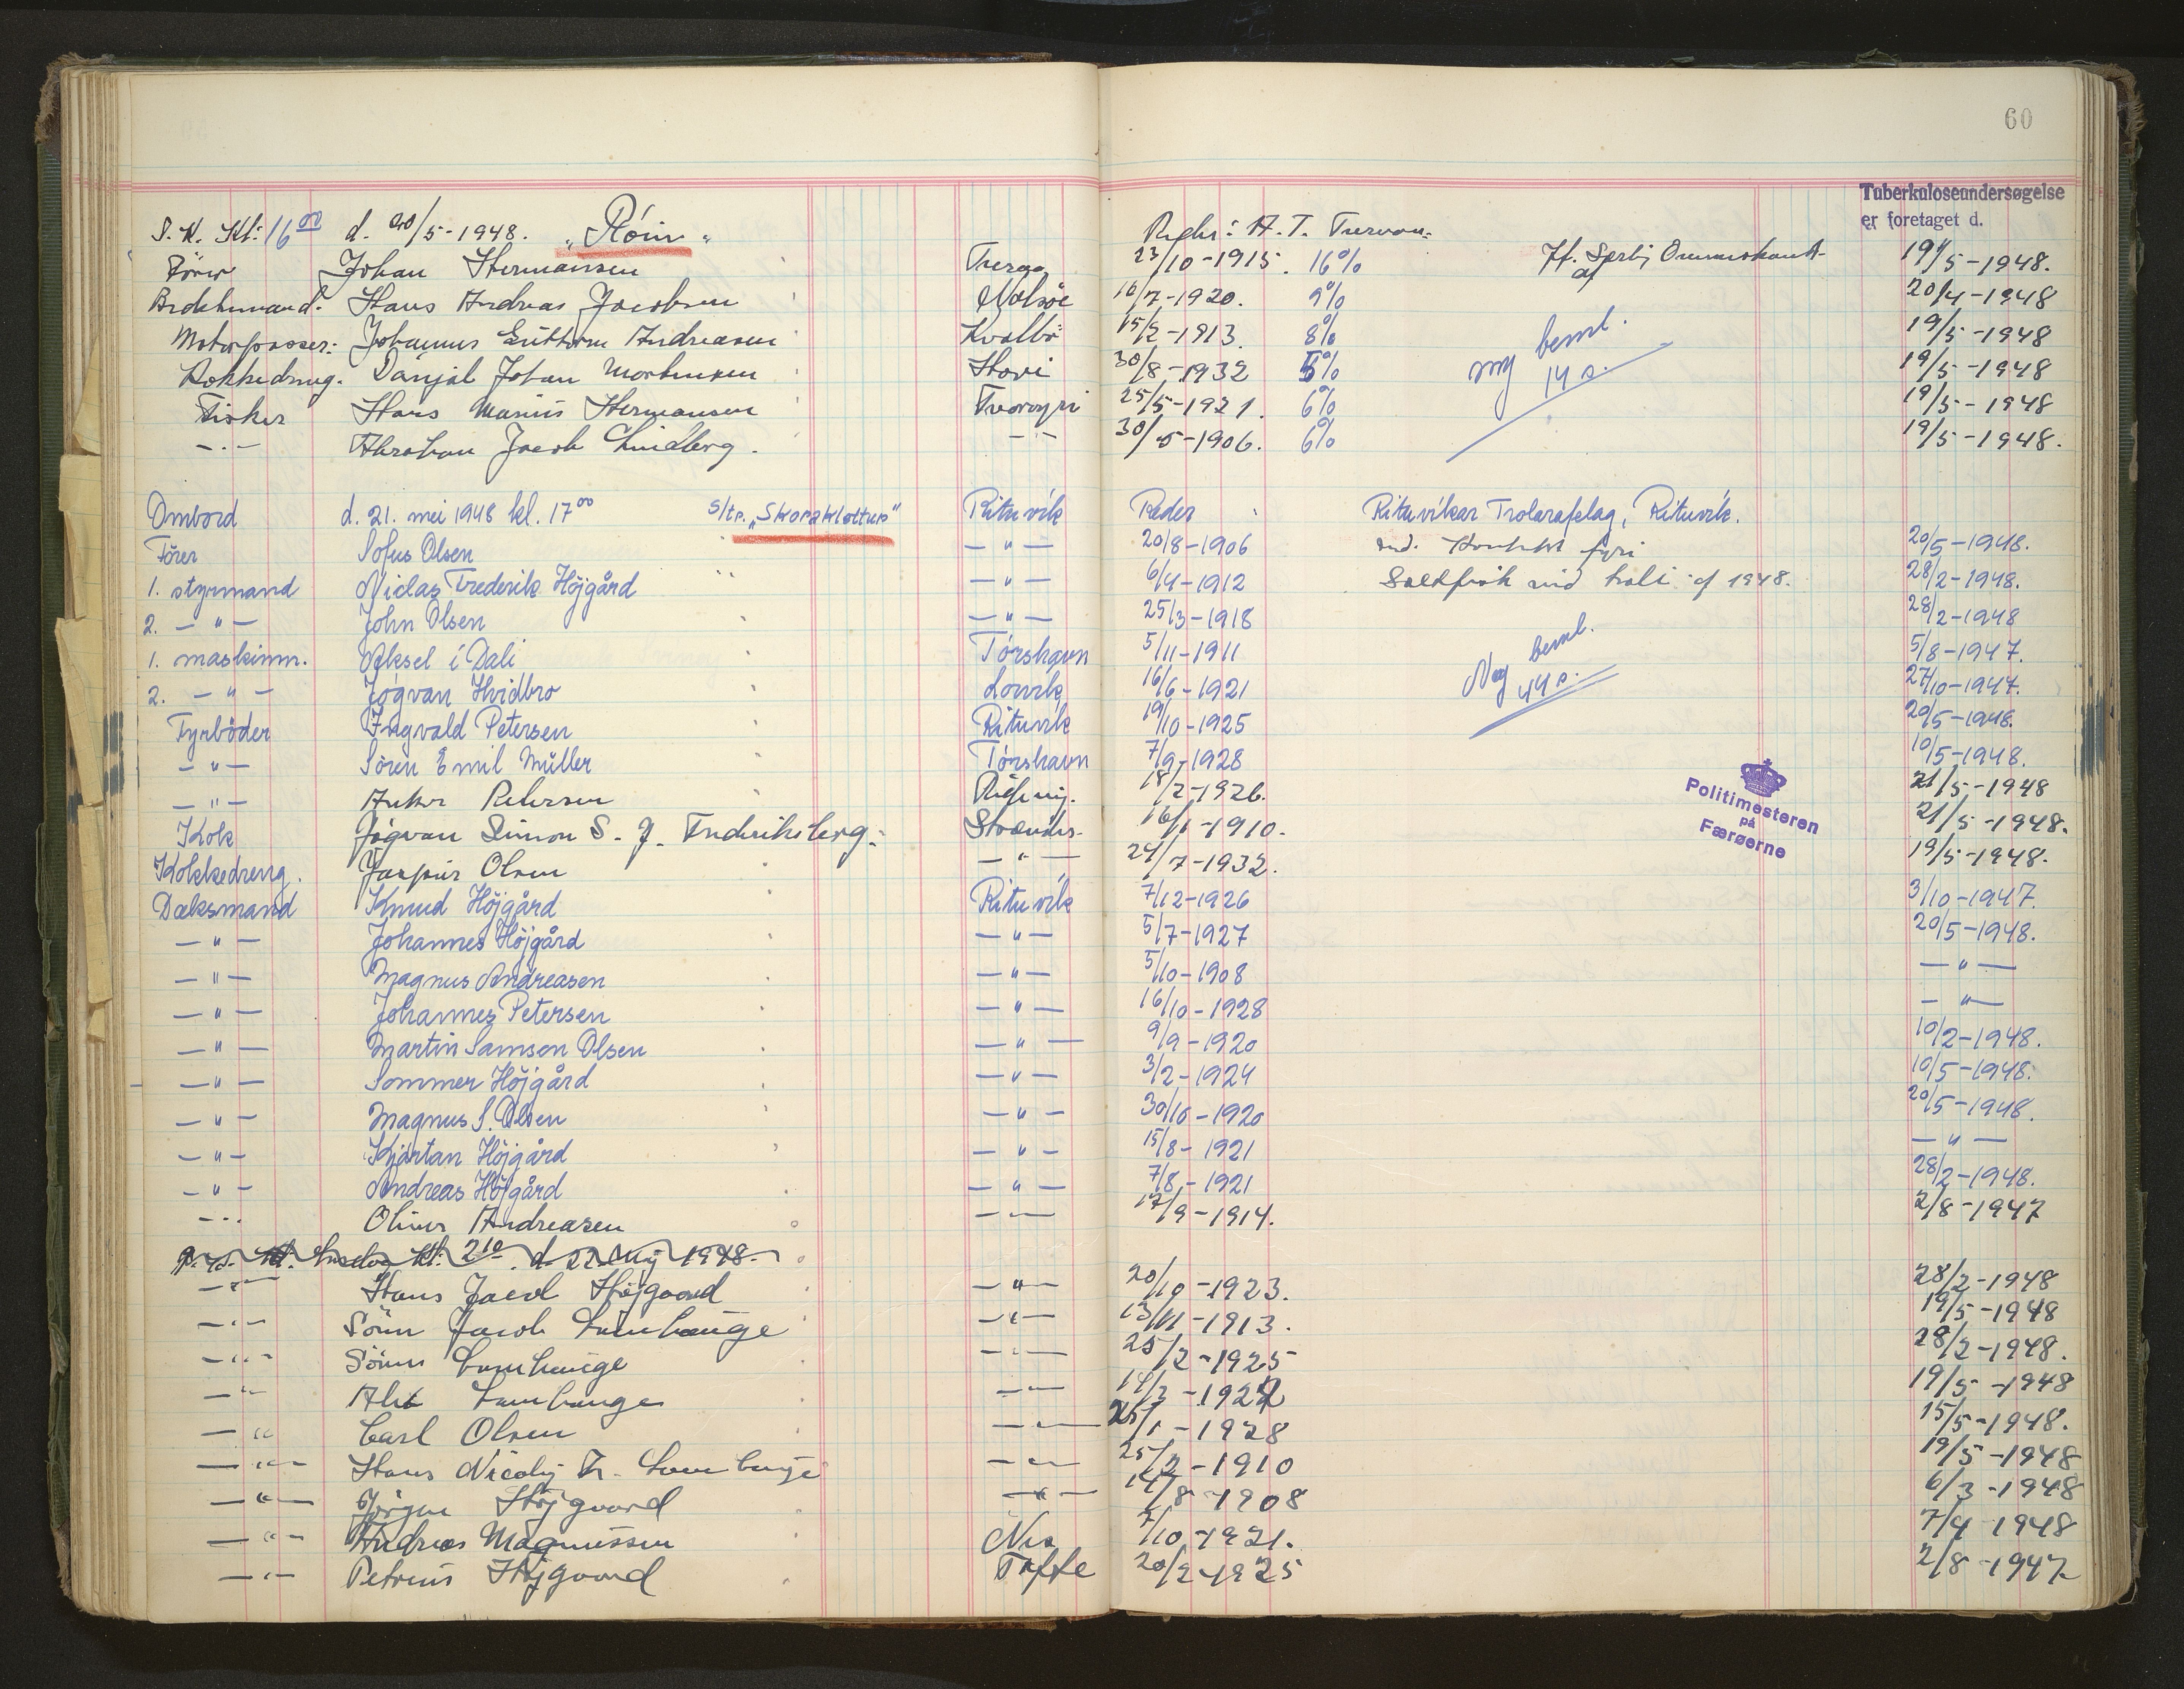 60
Tuberkuloseundersøgelse
er foretaget d.
S. K. Kl: 16 00 d. 20/5-1948. "Róin"
Johan Hermansen 23/10-1915. 16% 19/5-1948.
Hans Andreas Jacobsen Nolsöe 16/7-1920. 9% 20/4-1948
Motorpasser: Johannes Guttorm Andreasen Kvalbö 15/2-1913. 8% 19/5-1948
Kokkedreng. Dánjal Johan Mortensen Hovi 30/8-1932 5% 19/5-1948
Fisker Hans Marius Hermansen Tvøroyri 25/5-1921. 6% 19/5-1948
-.- Abraham Jacob Lindberg. -"- 30/5-1906. 6% 19/5-1948.
14 s.
Ombord d. 21. mei 1948 kl. 17 00 s/tr. "Skoraklettur" Rituvík Reder : Rituvíkar Trolarafelag, Rituvík.
Fører Sofus Olsen -"- 20/8-1906 20/5-1948.
1. styrmand Niclas Frederik Höjgård -"- 6/4-1912 Saltfisk við troli 1948. 28/2-1948.
2. -"- John Olsen -"- 25/3-1918 28/2-1948
1. maskinm. Aksel í Dali Tórshavn 5/11-1911 5/8-1947.
2. -"- Jógvan Hvidbro Lorvík 16/6-1921 27/10-1947.
Fyrböder Ingvald Petersen Rituvík 19/10-1925 20/5-1948.
-"- Sören Emil Müller Tórshavn 7/9-1928 10/5-1948.
-"- Anker Petersen 18/2-1926. 21/5-1948
Politimesteren
på
Færøerne
Kok Jógvan Simon S. J. Frederiksberg: Strænder. 16/1-1910. 21/5-1948.
Kokkedreng. Jaspur Olsen -"- 24/7-1932. 19/5-1948.
Dæksmand Knud Höjgård Rituvík 7/12-1926 3/10-1947.
-"- Johannes Höjgård -"- 5/7-1927 20/5-1948.
-"- Magnus Andreasen -"- 5/10-1908 -"-
-"- Johannes Petersen -"- 16/10-1928 -"-
-"- Martin Samson Olsen -"- 9/9-1920 10/2-1948.
-"- Sommer Höjgård -"- 3/2-1924 10/5-1948.
-"- Magnus S. Olsen -"- 30/10-1920 20/5-1948.
-"- Kjartan Höjgård -"- 15/8-1921 -"-
-"- Andreas Höjgård -"- 7/8-1921 28/2-1948.
-"- Oliver Andreasen -"- 17/9-1914. 2/8-1947
-"- Hans Jacob Höjgaard -"- 20/10-1923. 28/2-1948
-"- Sörin Jacob Lamhauge -"- 13/11-1913. 19/5-1948
-"- Sörin Lamhauge -"- 25/2-1925 28/2-1948.
-"- Lamhauge -"- 19/5-1948
-"- Carl Olsen -"- 1928 15/5-1948.
-"- Hans Nicolaj Fr. Lamhauge -"- 25/2-1910 19/5-1948
-"- Jörgen Höjgaard -"- 14/8-1908 6/3-1948
-"- Andreas Magnussen Nes 7/10-1921. 7/4-1948
-"- Petrus Höjgaard Tofte 20/2-1925 2/8-1947